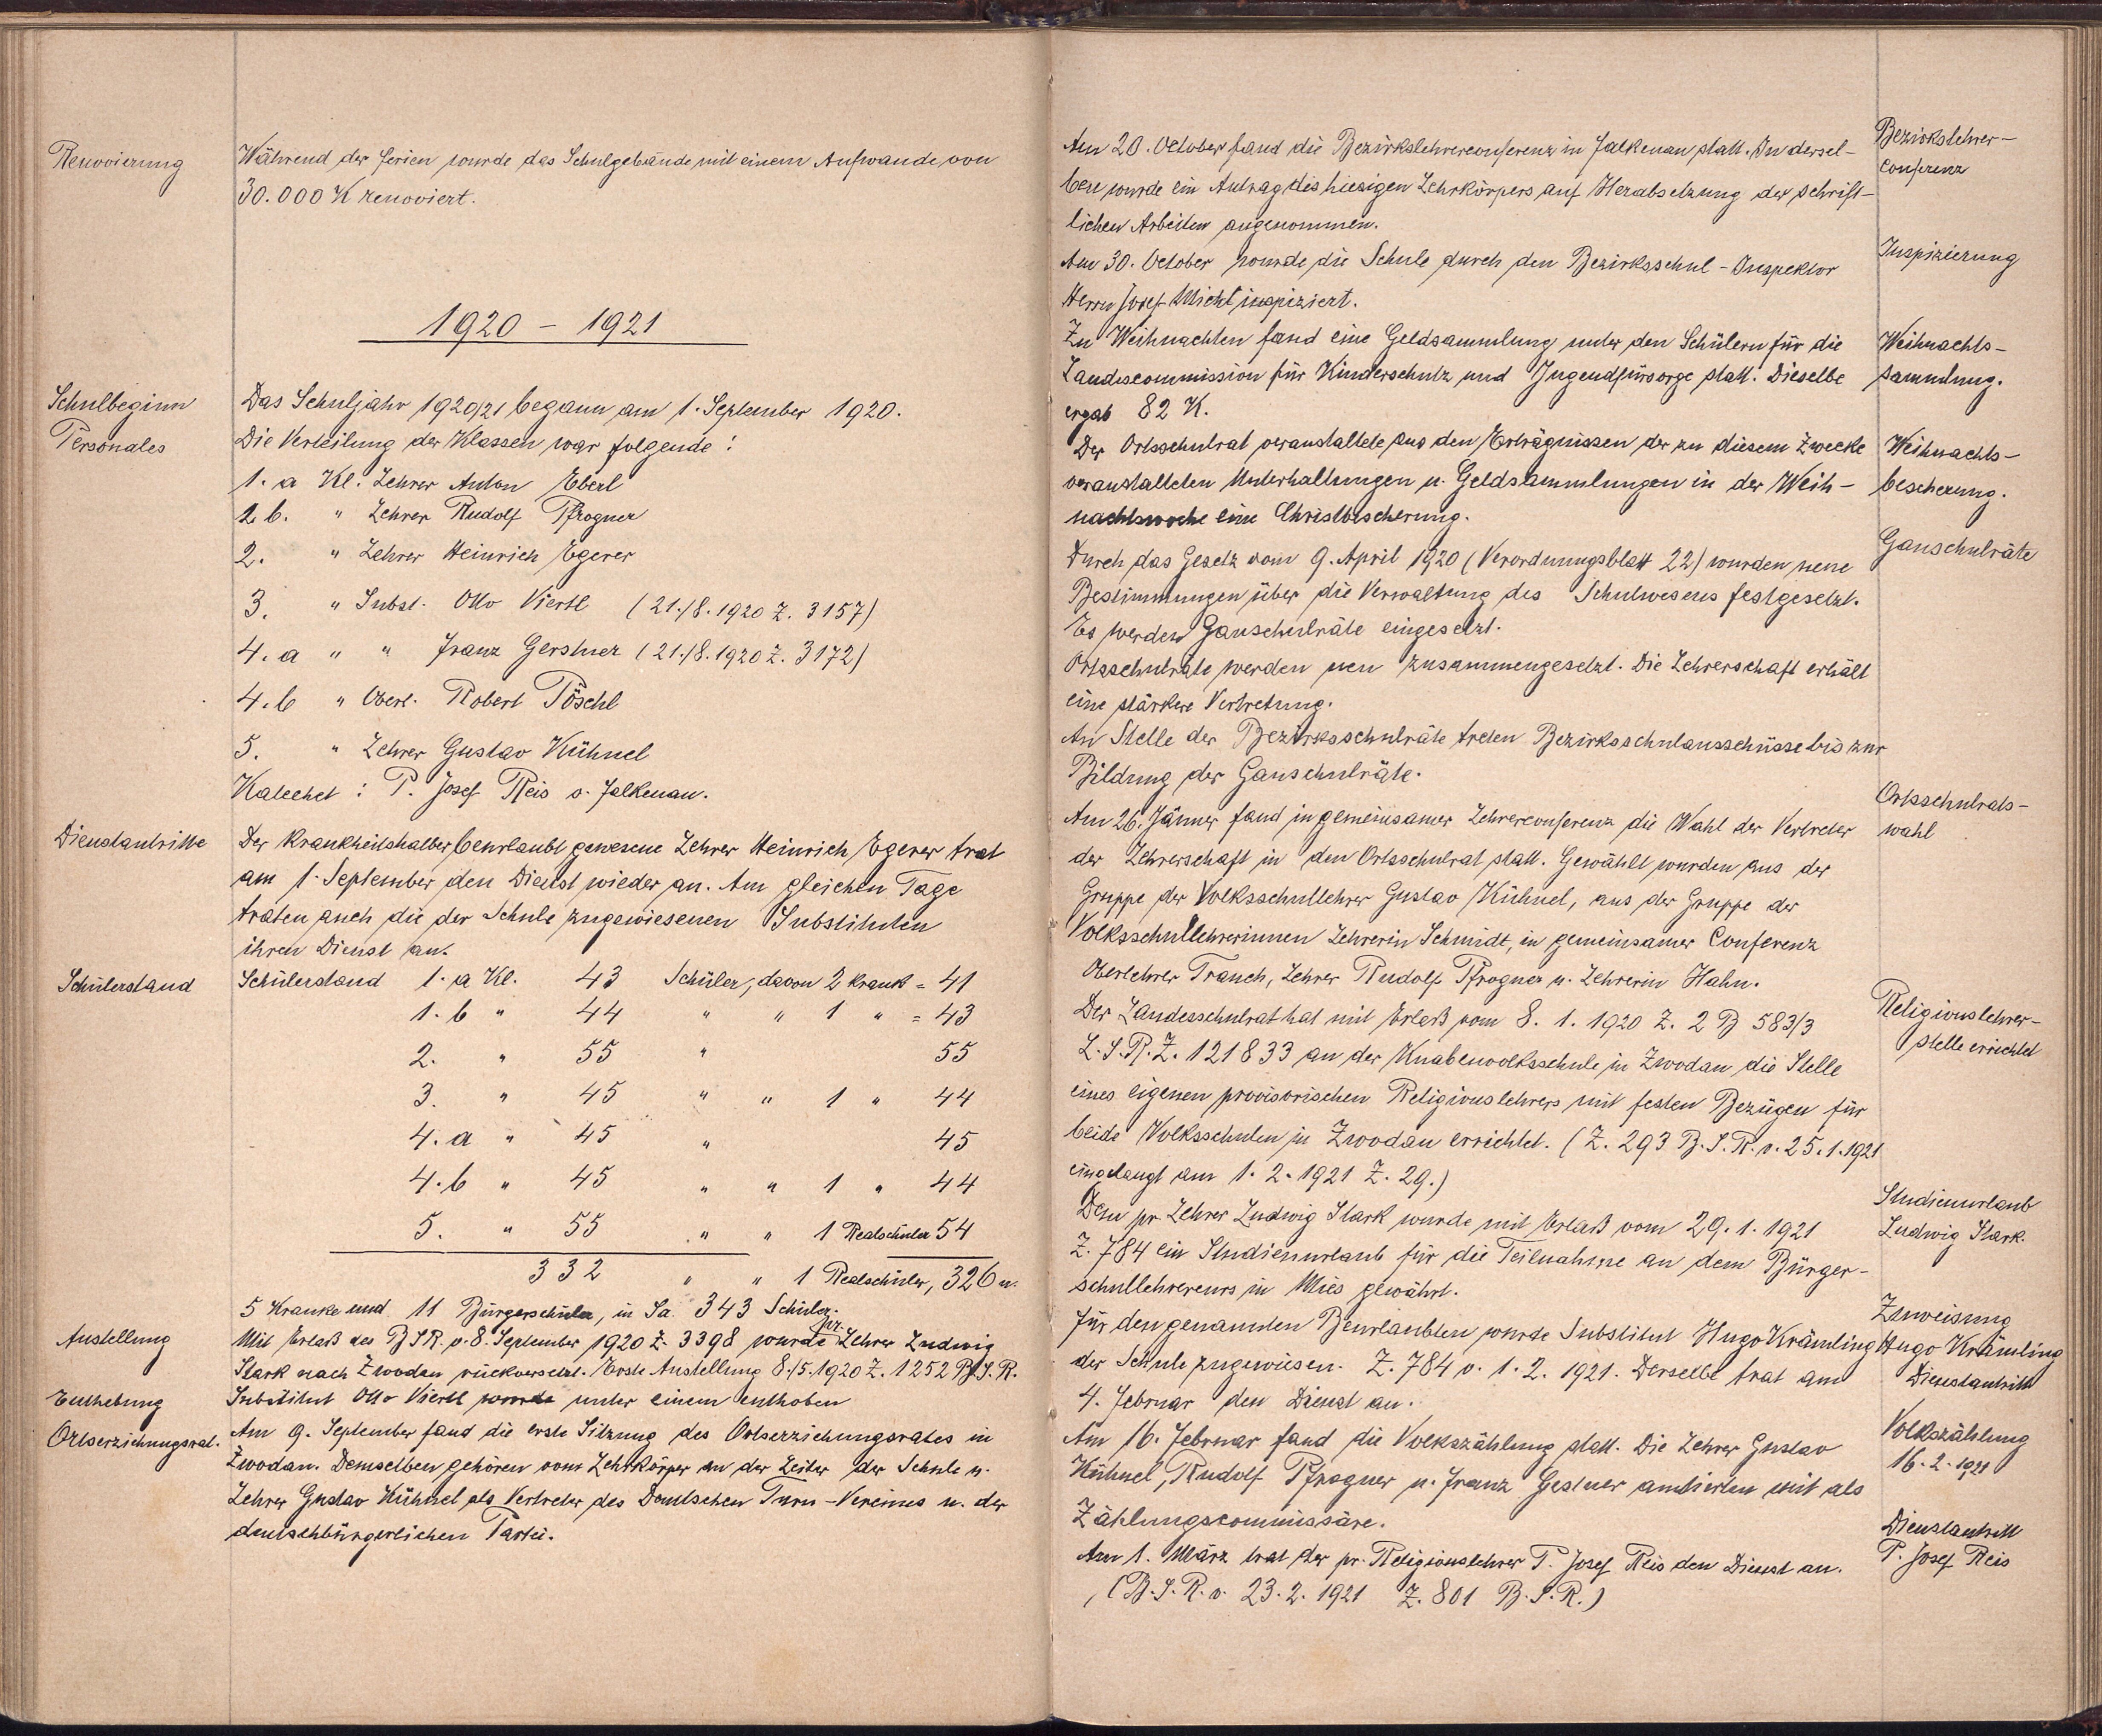 Renovierung
Während der Ferien wurde das Schulgebäude mit einem Aufwande von
30.000 K renoviert.
1920 – 1921
Schulbeginn
Das Schuljahr 1920/21 begann am 1. September 1920.
Personales
Die Verteilung der Klassen war folgende :
1. a Kl. Lehrer Anton Eberl
1 b. " Lehrer Rudolf Pfrogner
2. " Lehrer Heinrich Egerer
3. " Subst. Otto Viertl (21./8. 1920 Z. 3157)
4. a " " Franz Gerstner (21./8. 1920 Z. 3172)
4. b " Oberl. Robert Pöschl
5. " Lehrer Gustav Kühnel
Katechet : P. Josef Reis v. Falkenau.
Dienstantritte
Der krankheitshalber beurlaubt gewesene Lehrer Heinrich Egerer trat
am 1. September den Dienst wieder an. Am gleichen Tage
traten auch die der Schule zugewiesenen Substituten
ihren Dienst an.
Schülerstand
Schülerstand 1. a Kl. 43 Schüler, davon 2 krank = 41
1. b " 44 " " 1 " = 43
2. " 55 " 55
3. " 45 " " 1 " 44
4. a " 45 " 45
4. b " 45 " " 1 " 44
5. " 55 " " 1 Realschüler 54
332 " " 1 Realschüler, 326 u.
5 Kranke und 11 Bürgerschüler, in Sa. 343 Schüler.
Anstellung
Mit Erlaß des B S R. v. 8. September 1920 Z. 3398 wurde pr. Lehrer Ludwig
Stark nach Zwodau rückversetzt. Erste Anstellung 8./5. 1920 Z. 1252 B. S. R.
Enthebung
Substitut Otto Viertl wurde unter einem enthoben
Ortserziehungsrat.
Am 9. September fand die erste Sitzung des Ortserziehungsrates in
Zwodau. Demselben gehören vom Lehrkörper an der Leiter der Schule u.
Lehrer Gustav Kühnel als Vertreter des Deutschen Turn-Vereines u. der
deutschbürgerlichen Partei.
Am 20. October fand die Bezirkslehrerconferenz in Falkenau statt. In dersel-
Bezirkslehrer-
ben wurde ein Antrag des hiesigen Lehrkörpers auf Herabsetzung der schrift-
conferenz
lichen Arbeiten angenommen.
Am 30. October wurde die Schule durch den Bezirksschul-Inspektor
Inspizierung
Herrn Josef Michl inspiziert.
Zu Weihnachten fand eine Geldsammlung unter den Schülern für die
Weihnachts-
Landescommission für Kinderschutz und Jugendfürsorge statt. Dieselbe
sammlung.
ergab 82 K.
Der Ortsschulrat veranstaltete aus den Erträgnissen der zu diesem Zwecke
Weihnachts-
veranstalteten Unterhaltungen u. Geldsammlungen in der Weih-
bescherung.
nachtswoche eine Christbescherung.
Durch das Gesetz vom 9. April 1920 (Verordnungsblatt 22) wurden neue
Gauschulräte
Bestimmungen über die Verwaltung des Schulwesens festgesetzt.
Es werden Gauschulräte eingesetzt.
Ortsschulräte werden neu zusammengesetzt. Die Lehrerschaft erhält
eine stärkere Vertretung.
An Stelle der Bezirksschulräte treten Bezirksschulausschüsse bis zur
Bildung der Gauschulräte.
Ortsschulrats-
Am 26. Jänner fand in gemeinsamer Lehrerconferenz die Wahl der Vertreter
wahl
der Lehrerschaft in den Ortsschulrat statt. Gewählt wurden aus der
Gruppe der Volksschullehrer Gustav Kühnel, aus der Gruppe der
Volksschullehrerinnen Lehrerin Schmidt, in gemeinsamer Conferenz
Oberlehrer Trauch, Lehrer Rudolf Pfrogner u. Lehrerin Hahn.
Der Landesschulrat hat mit Erlaß vom 8. 1. 1920 Z. 2 B 583/3
Religionslehrer-
L. S. R. Z. 121833 an der Knabenvolksschule in Zwodau die Stelle
stelle errichtet
eines eigenen provisorischen Religionslehrers mit festen Bezügen für
beide Volksschulen in Zwodau errichtet. (Z. 293 B. S. R. v. 25. 1. 1921
eingelangt am 1. 2. 1921 Z. 29.)
Dem pr. Lehrer Ludwig Stark wurde mit Erlaß vom 29. 1. 1921
Studienurlaub
Ludwig Stark.
Z. 784 ein Studienurlaub für die Teilnahme an dem Bürger-
schullehrercurs in Mies gewährt.
Zuweisung
Für den genannten Beurlaubten wurde Substitut Hugo Krämling
Hugo Krämling
der Schule zugewiesen. Z. 784 v. 1. 2. 1921. Derselbe trat am
Dienstantritt
4. Februar den Dienst an.
Am 16. Februar fand die Volkszählung statt. Die Lehrer Gustav
Volkszählung
Kühnel, Rudolf Pfrogner u. Franz Gestner amtierten mit als
16. 2. 1921
Zählungscommissäre.
Dienstantritt
Am 1. März trat der pr. Religionslehrer P. Josef Reis den Dienst an.
P. Josef Reis
(B. S. R. v. 23. 2. 1921 Z. 801 B. S. R.)